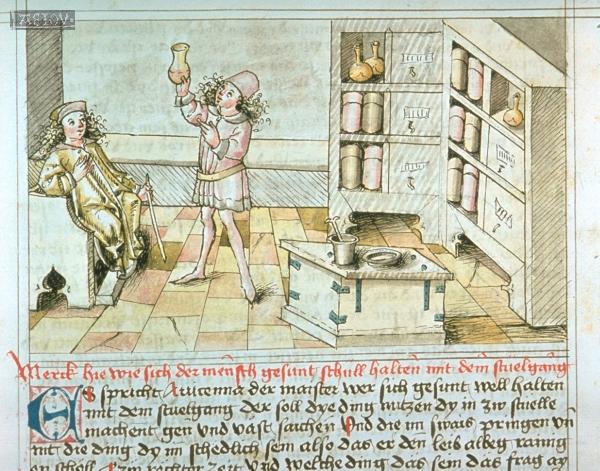 Merck hie wie sich der mensch gesunt schull halten mit dem stuelgang
Es spricht Avicenna der maister wer sich gesunt well halten
mit dem stuelgang der soll drye ding nutzen dy in zw stuelle
machent gen und vast
mit die ding dy im schedlich sein also das er den leib albeg raing
zeit und welche ding das sein das frag